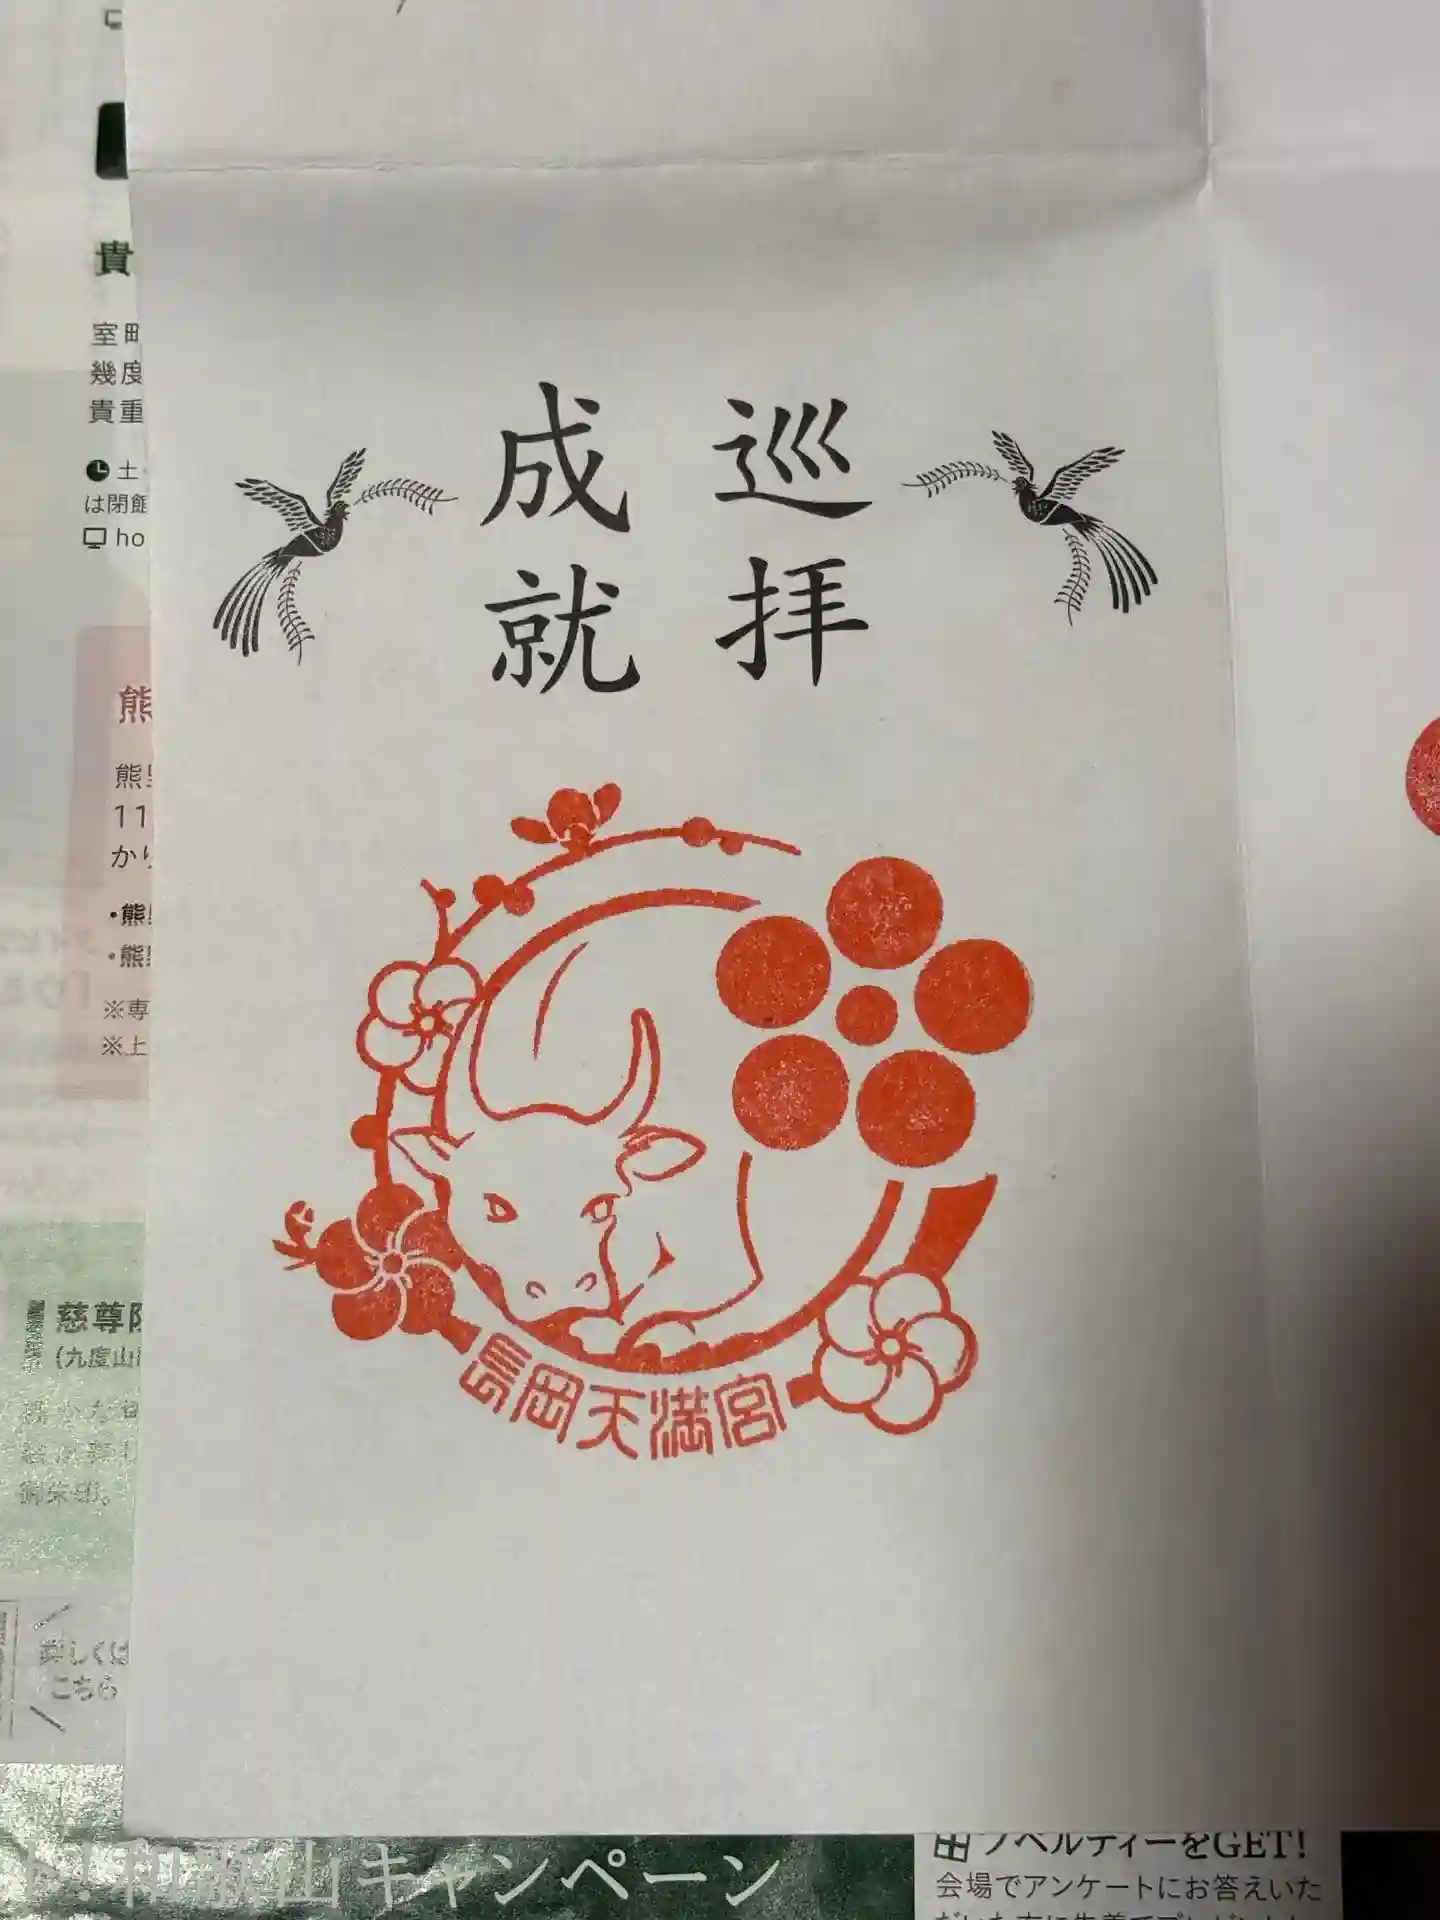 巡拝
成就
長岡天満宮
貴
室町
幾度
貴重
土
は閉館
ho
熊
熊野
11
・熊
・熊
※専
※上
慈尊院
(九度山
こちら
和歌山キャンペーン
ノベルティーをGET!
会場でアンケートにお答えいた